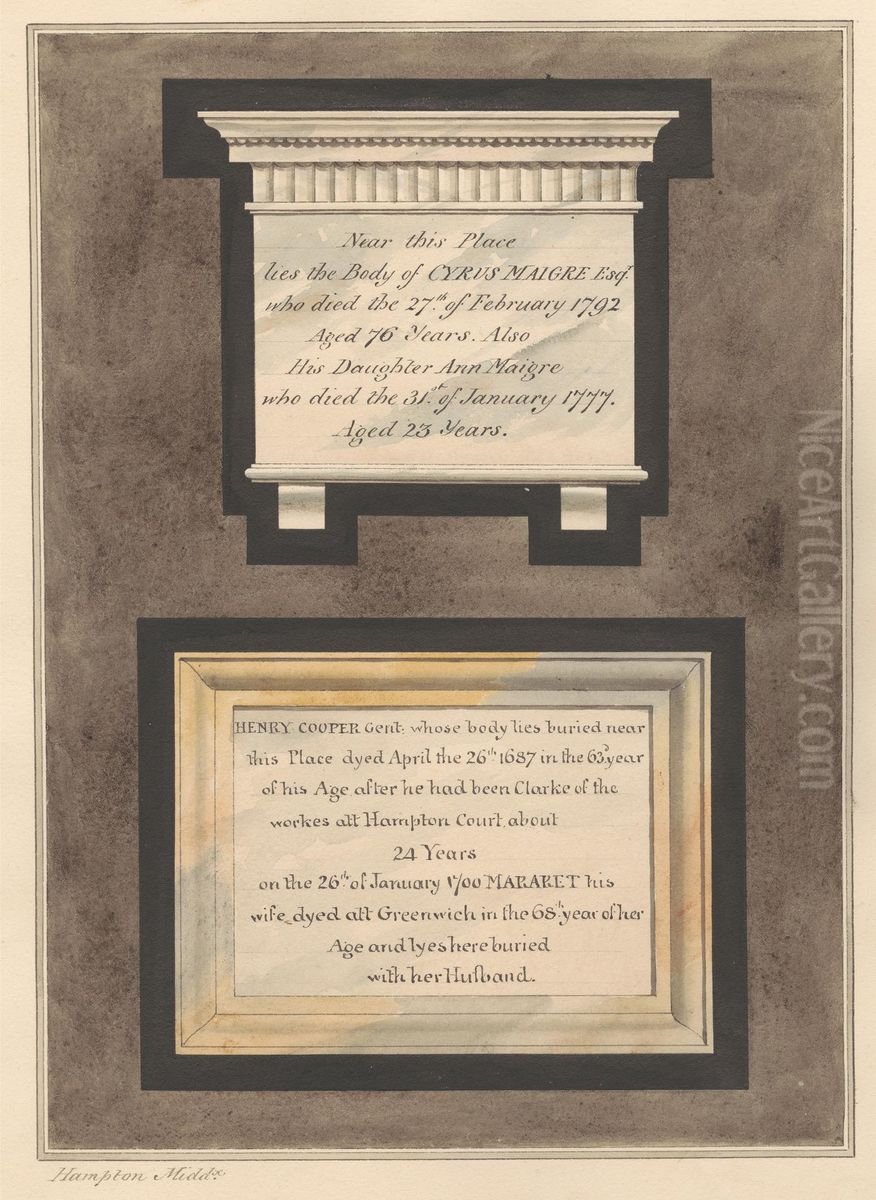 Near this Place
lies the Body of CYRUS MAIGRE Esqr.
who died the 27th. of February 1792
Aged 76 Years. Also
His Daughter Ann Maigre
who died the 31st. of January 1777.
Aged 23 Years.
HENRY COOPER Gent: whose body lies buried near
this Place dyed April the 26th. 1687 in the 63d. year
of his Age after he had been Clarke of the
workes att Hampton Court about
24 Years
on the 26th. of January 1700 MARARET his
wife dyed att Greenwich in the 68th. year of her
Age and lyes here buried
with her Husband.
Hampton Middx.
NiceArtGallery.com